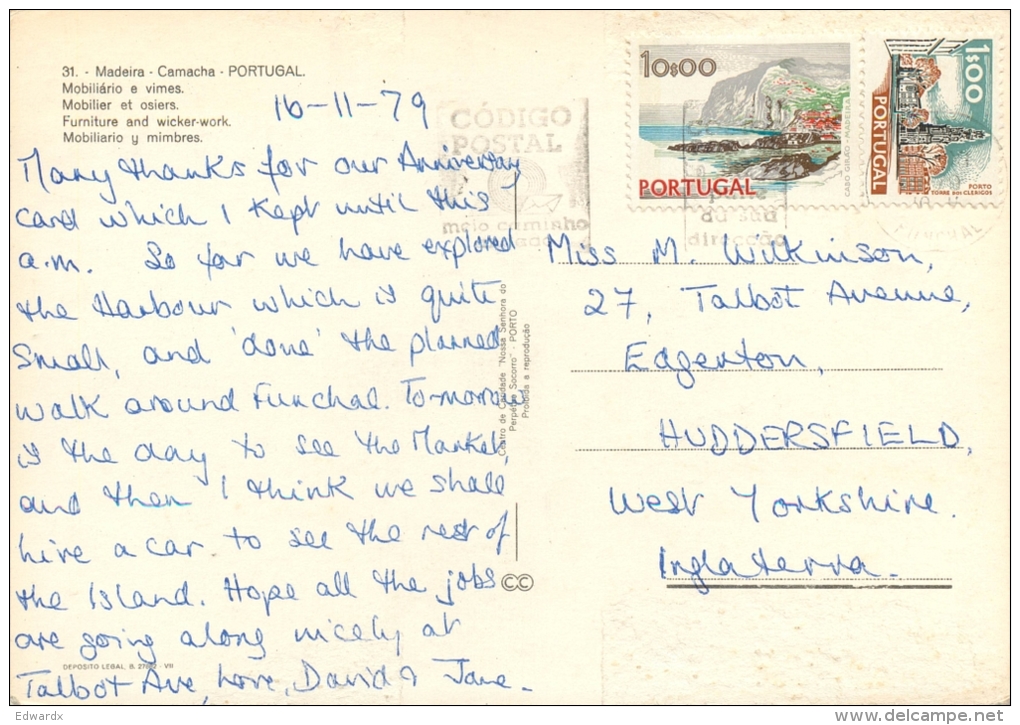 31. - Madeira - Camacha - PORTUGAL.
Mobiliário e vimes.
Mobilier et osiers.
Furniture and wicker-work.
Mobiliario y mimbres.
16-11-79
Many thanks for our Anniversary
card which I kept until this
a.m. So far we have explored
the Harbour which is quite
small, and 'done' the planned
walk around Funchal. To-morrow
is the day to see the Market,
and then I think we shall
hire a car to see the rest of
the Island. Hope all the jobs
are going along nicely at
Talbot Ave, Love, David & Jane.
DEPOSITO LEGAL, B.
- VII
CÓDIGO
POSTAL
meio caminho
Centro de Caridade "Nossa Senhora do
Perpétuo Socorro" - PORTO
Proibida a reprodução
CC
10$00
PORTUGAL
CABO GIRÃO - MADEIRA
1$00
PORTUGAL
PORTO
TORRE DOS CLÉRIGOS
direcção
Miss M. Wilkinson,
27, Talbot Avenue,
Edgerton,
HUDDERSFIELD,
West Yorkshire.
Inglaterra.
Edwardx
www.delcampe.net